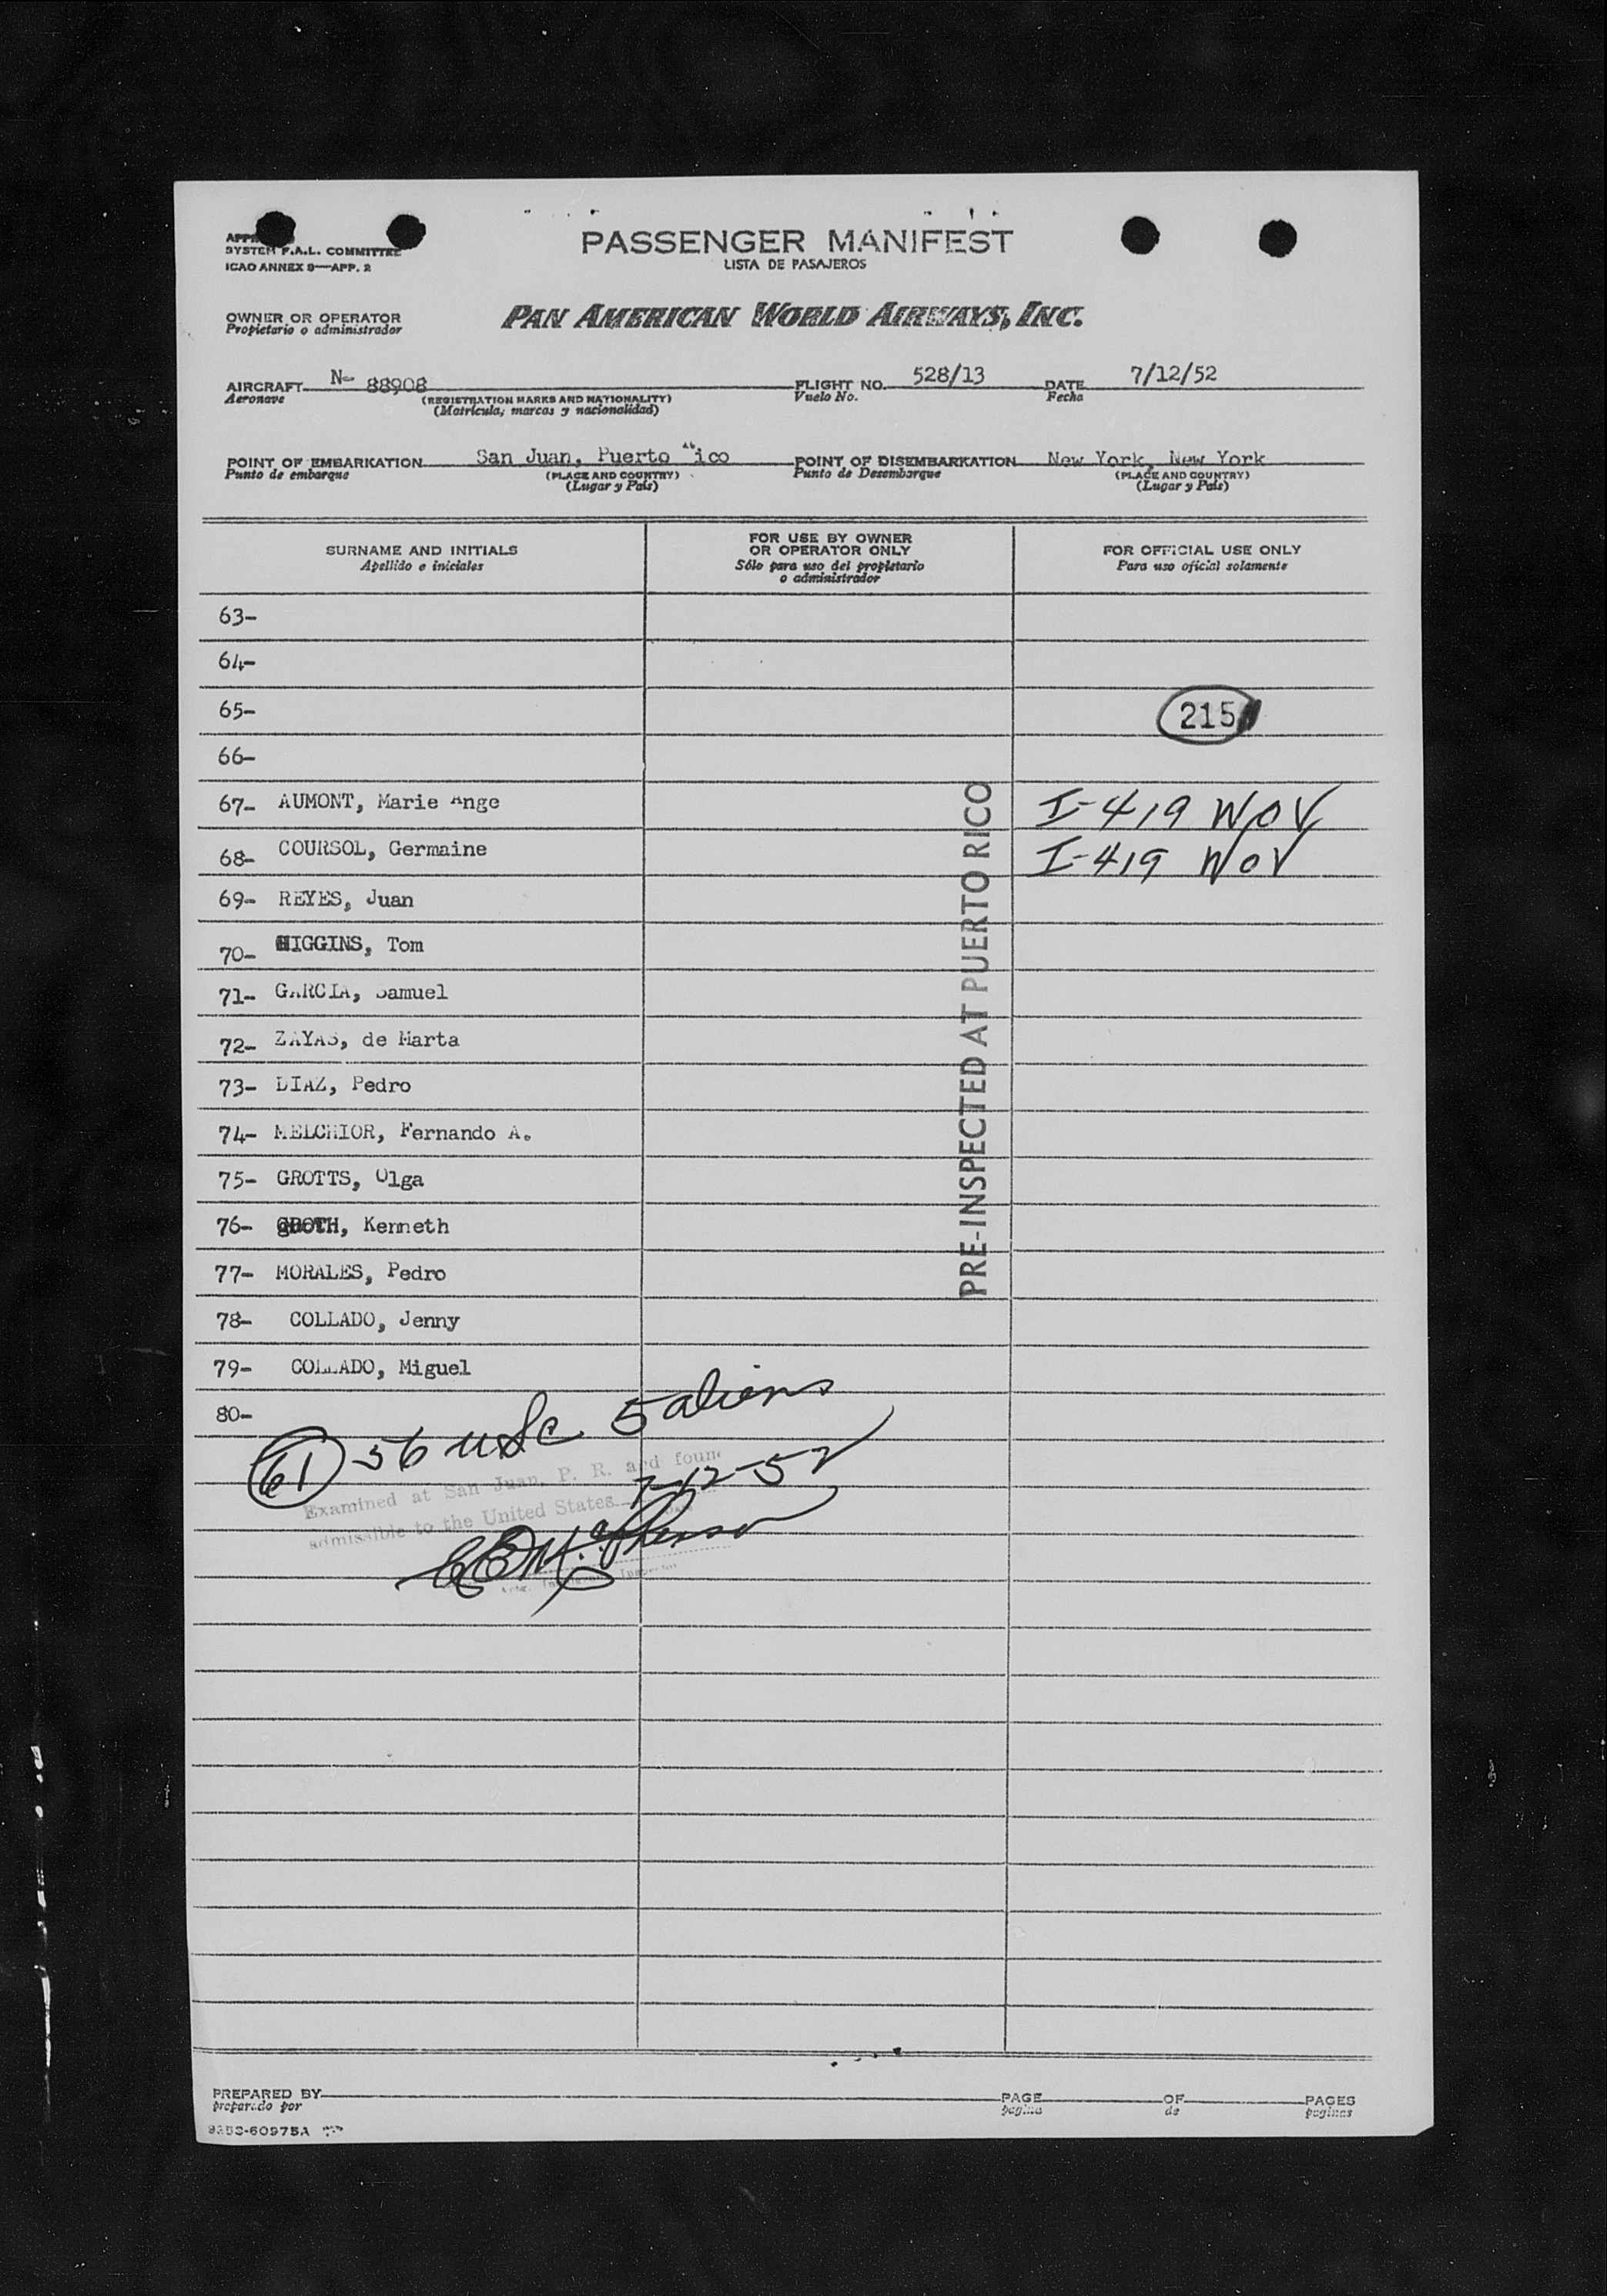 SYSTEM F.A.L. COMMITTEE
ICAO ANNEX 9—APP. 2
PASSENGER MANIFEST
LISTA DE PASAJEROS
OWNER OR OPERATOR
Propietario o administrador
PAN AMERICAN WORLD AIRWAYS, INC.
AIRCRAFT N- 88908 FLIGHT NO. 528/13 DATE 7/12/52
Aeronave (REGISTRATION MARKS AND NATIONALITY) Vuelo No. Fecha
(Matrícula, marcas y nacionalidad)
POINT OF EMBARKATION San Juan, Puerto Rico POINT OF DISEMBARKATION New York, New York
Punto de embarque (PLACE AND COUNTRY) Punto de Desembarque (PLACE AND COUNTRY)
(Lugar y País) (Lugar y País)
SURNAME AND INITIALS
Apellido e iniciales
FOR USE BY OWNER
OR OPERATOR ONLY
Sólo para uso del propietario
o administrador
FOR OFFICIAL USE ONLY
Para uso oficial solamente
63-
64-
65- 215
66-
67- AUMONT, Marie Ange I-419 WOV
68- COURSOL, Germaine I-419 WOV
69- REYES, Juan
70- HIGGINS, Tom
71- GARCIA, Samuel
72- ZAYAS, de Marta
73- DIAZ, Pedro
74- MELCHIOR, Fernando A.
75- GROTTS, Olga
76- GROTH, Kenneth
77- MORALES, Pedro
78- COLLADO, Jenny
79- COLLADO, Miguel
80-
PRE-INSPECTED AT PUERTO RICO
61 56 USC 5 aliens
Examined at San Juan, P. R. and found
admissible to the United States 7-12-52
PREPARED BY PAGE OF PAGES
preparado por pagina de paginas